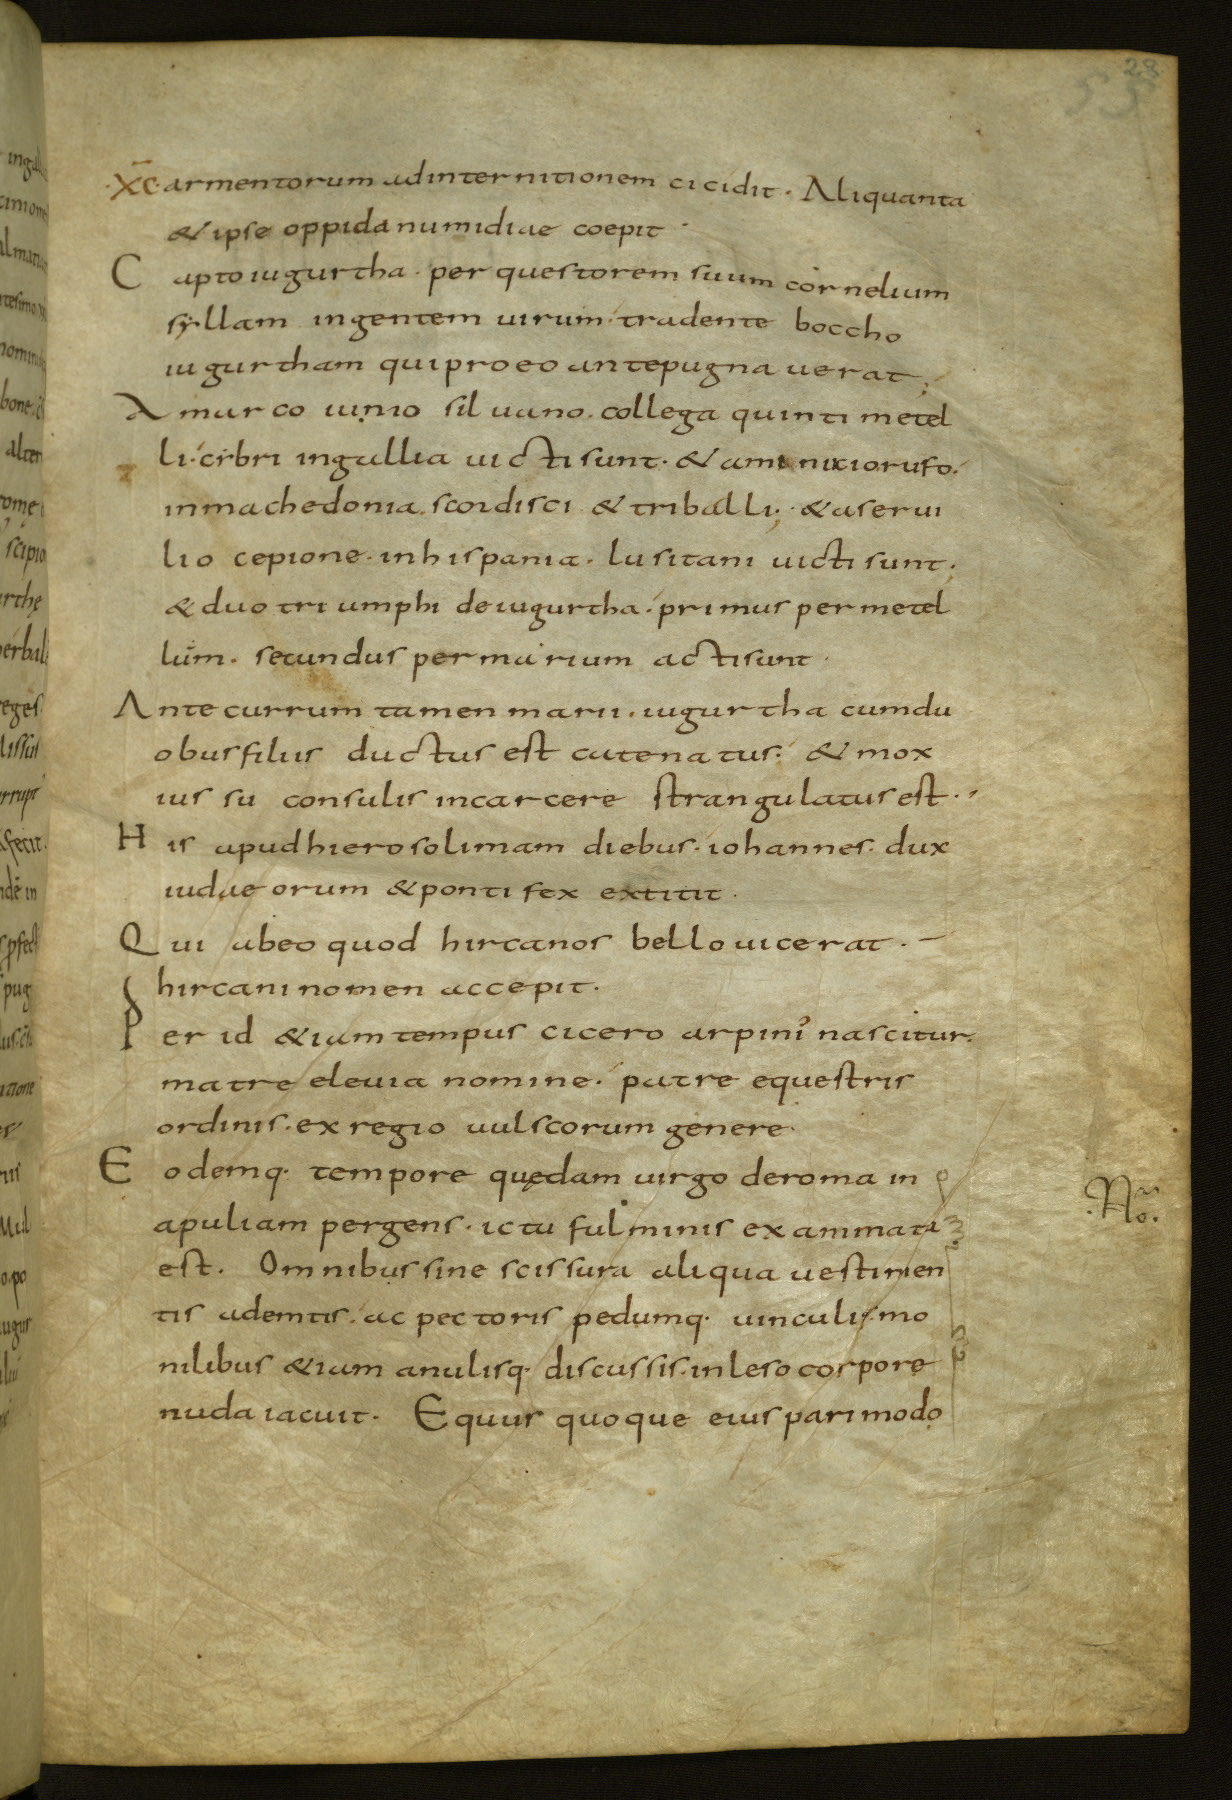 28
·X̅C· armentorum adinternitionem cicidit. Aliquanta
& ipse oppida numidiae coepit.
Capto iugurtha. per questorem suum cornelium
syllam ingentem uirum. tradente boccho
iugurtham qui pro eo ante pugnauerat;
A marco iunio siluano. collega quinti metel
li. crbri in gallia uicti sunt. & a minicio rufo.
in machedonia. scordisci & triballi; & a serui
lio cepione. in hispania. lusitani uicti sunt.
& duo triumphi de iugurtha. primus per metel
lum. secundus per marium acti sunt.
Ante currum tamen marii. iugurtha cum du
obus filiis ductus est catenatus. & mox
iussu consulis in carcere strangulatus est.
His apud hierosolimam diebus. iohannes. dux
iudaeorum & pontifex extitit.
Qui ab eo quod hircanos bello uicerat.
hircani nomen accepit.
Per id &iam tempus cicero arpini nascitur.
matre eleuia nomine. patre equestris
ordinis. ex regio uulscorum genere.
Eodemq. tempore quędam uirgo de roma in
apuliam pergens. ictu fulminis exanimata
est. Omnibus sine scissura aliqua uestimen
tis ademtis. ac pectoris pedumq. uinculis. mo
nilibus &iam anulisq. discussis. inleso corpore
nuda iacuit. Equus quoque eius pari modo